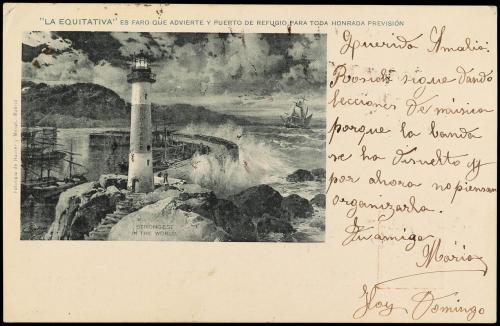 "LA EQUITATIVA" ES FARO QUE ADVIERTE Y PUERTO DE REFUGIO PARA TODA HONRADA PREVISIÓN
STRONGEST
IN THE WORLD
Querida Amalia:
sigue dando
lecciones de música
porque la banda
se ha disuelto y
por ahora no piensan
organizarla.
Tu amiga
María
Hoy Domingo